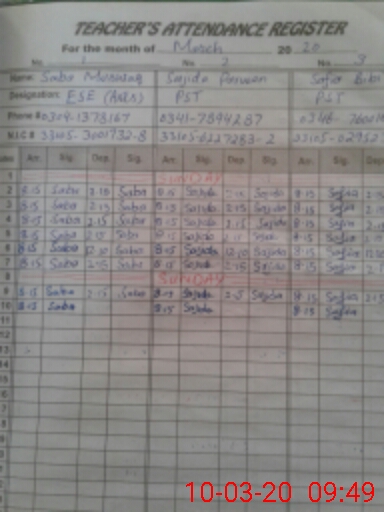 TEACHER'S ATTENDANCE REGISTER
For the month of March 2020
No. 1 No. 2 No. 3
Name: Saba Mushtaq Sajida Parveen Safia Bibi
Designation: ESE (Arts) PST PST
Phone # 0304-1378167 0341-7894287 0348-
N.I.C # 33105-3001732-8 33105-0227283-2 33105-
Arr. Sig. Dep. Sig. Arr. Sig. Dep. Sig. Arr. Sig. Dep.
1 SUNDAY
2 8.15 Saba 2.15 Saba 8.15 Sajida 2.15 Sajida 8.15 Safia
3 8.15 Saba 2.15 Saba 8.15 Sajida 2.15 Sajida 8.15 Safia
4 8.15 Saba 2.15 Saba 8.15 Sajida 2.15 Sajida 8.15 Safia
5 8.15 Saba 2.15 Saba 8.15 Sajida 8.15 Safia
6 8.15 Saba 12.10 Saba 8.15 Sajida 12.10 Sajida 8.15 Safia
7 8.15 Saba 2.15 Saba 8.15 Sajida 2.15 Sajida 8.15 Safia
8 SUNDAY
9 8.15 Saba 2.15 Saba 8.15 Sajida 2.15 Sajida 8.15 Safia
10 8.15 Saba 8.15 Sajida 8.15 Safia
11
12
13
10-03-20 09:49